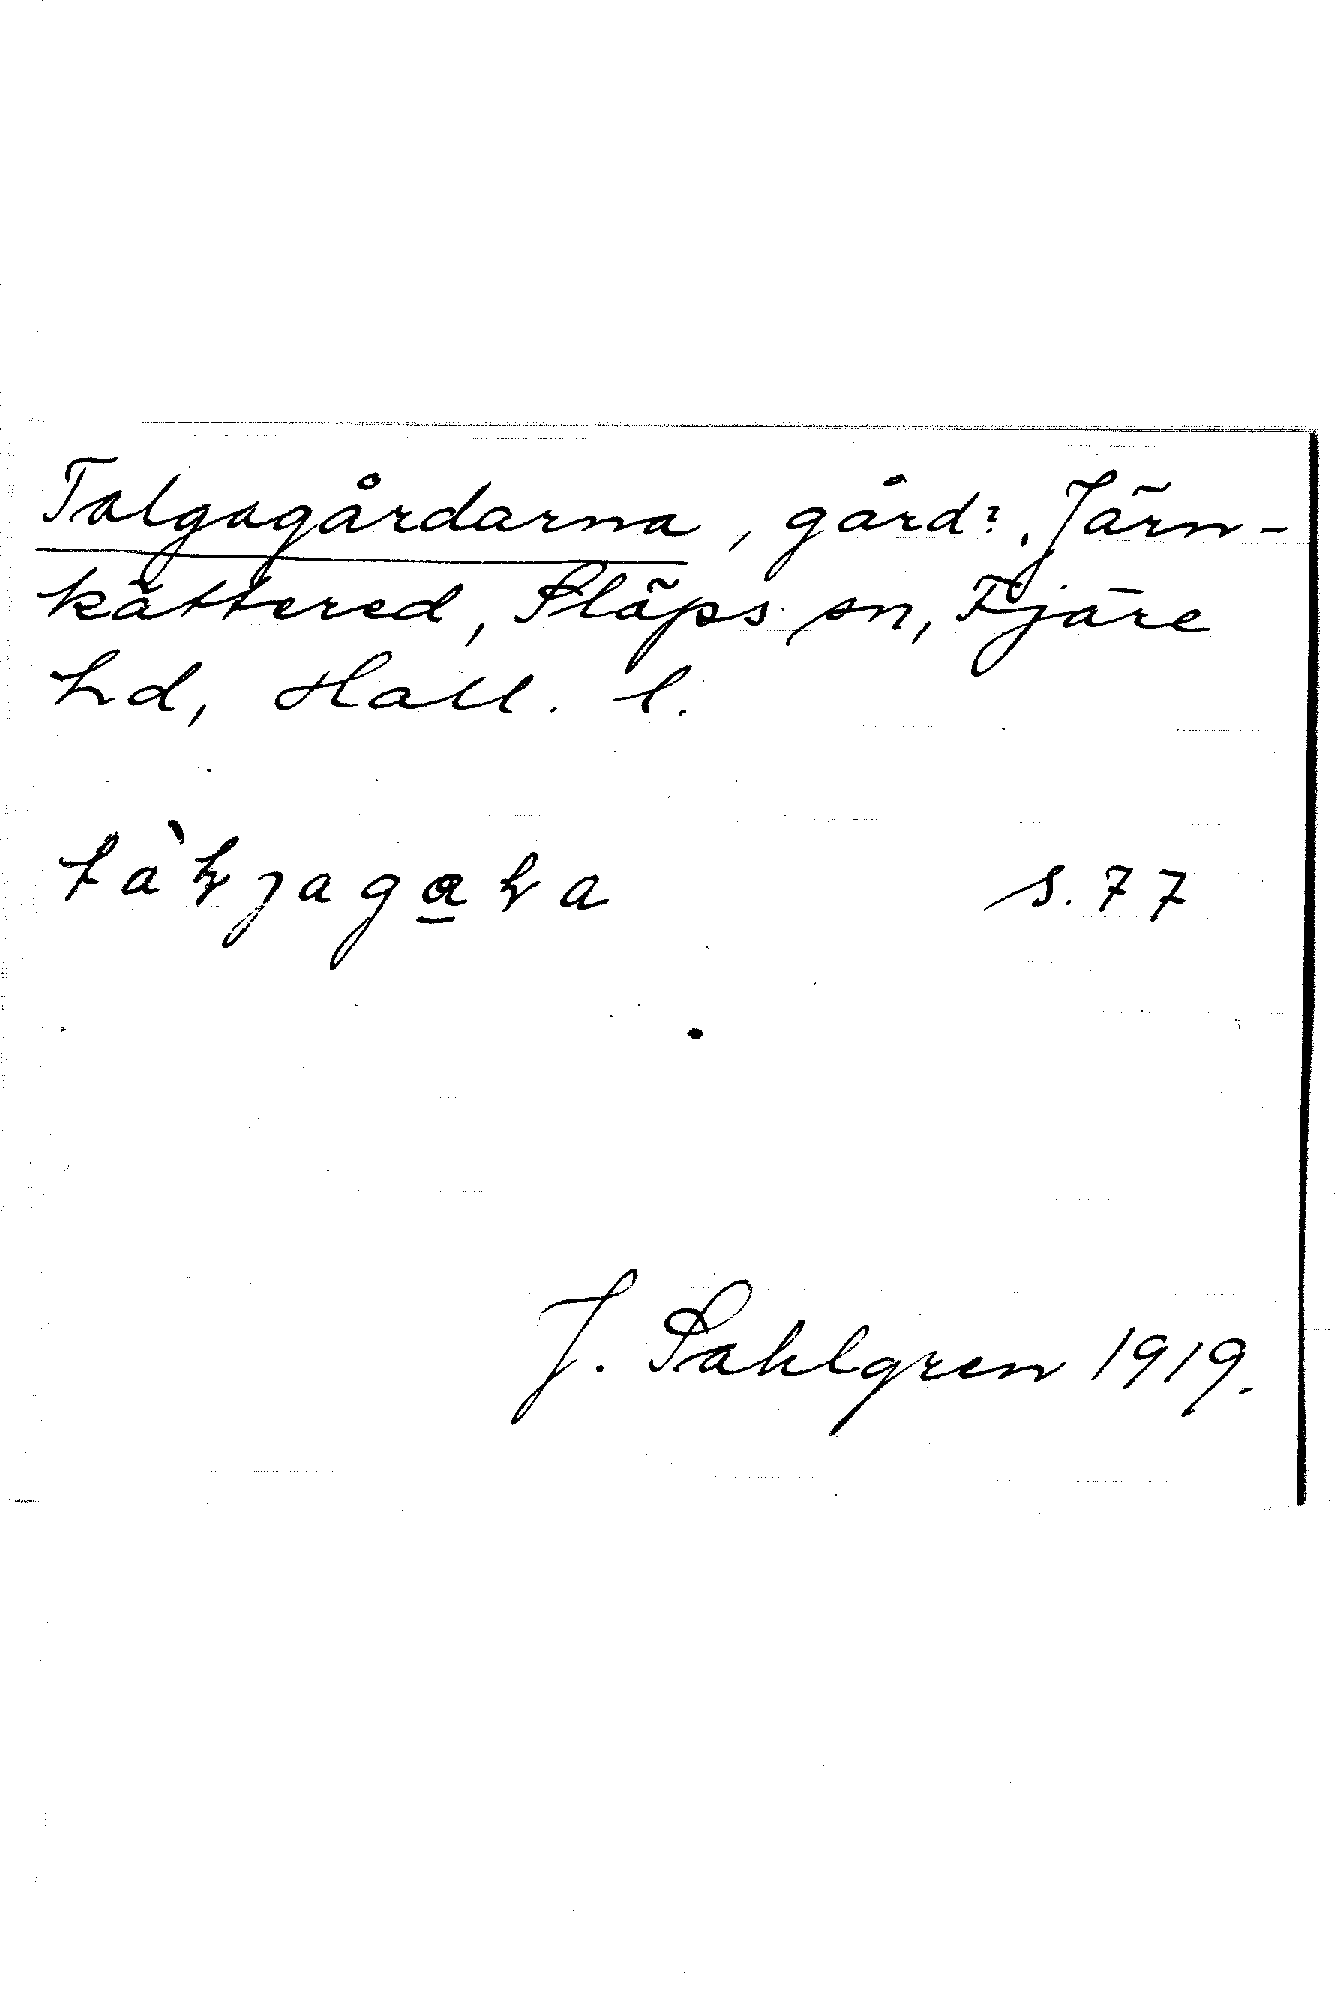 Talgagårdarna, gård i Järn-
kättered, Släps sn, Fjäre
hd, Hall. l.
s. 77
J. Sahlgren 1919.